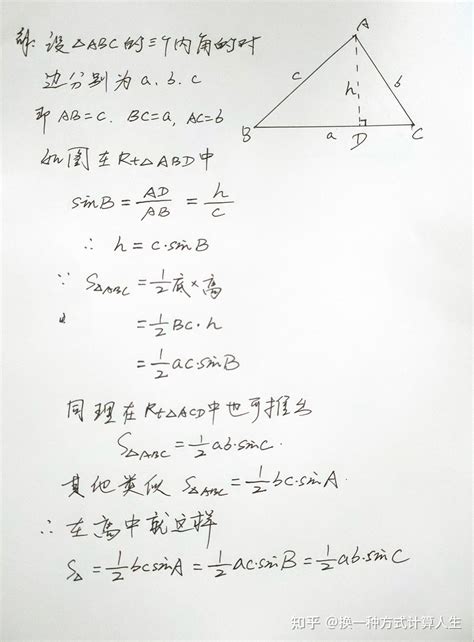 解: 设△ABC的三个内角的对
边分别为a、b、c
即 AB=c. BC=a, AC=b
如图在Rt△ABD中
sinB = AD/AB = h/c
∴ h = c·sinB
∵ S△ABC = 1/2底×高
= 1/2 BC·h
= 1/2 ac·sinB
同理在Rt△ACD中也可推出
S△ABC = 1/2 ab·sinC.
其他类似 S△ABC = 1/2 bc·sinA.
∴ 在高中就这样
S△ = 1/2 bcsinA = 1/2 ac·sinB = 1/2 ab·sinC
A
c
h
b
B
a
D
C
知乎 @换一种方式计算人生